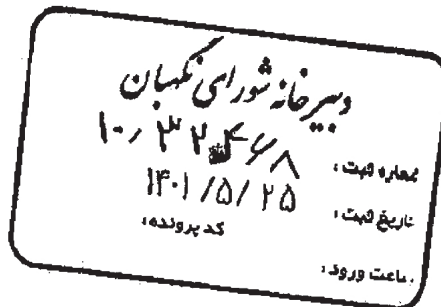 دبیرخانه شورای نگهبان
شماره ثبت:
تاریخ ثبت: ۱۴۰۱/۵/۲۵
کد پرونده:
ساعت ورود: